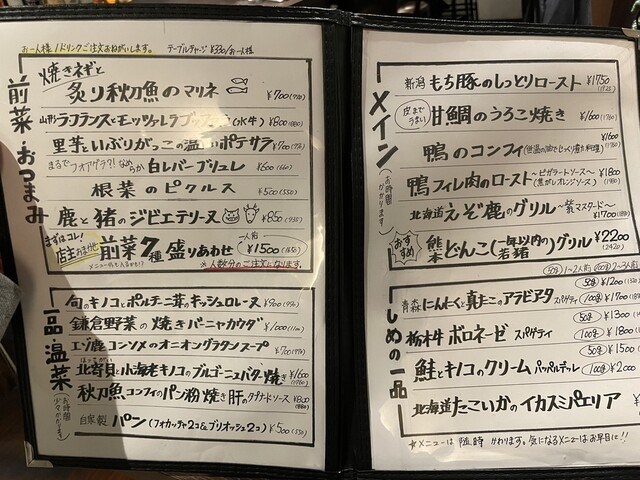 お一人様1ドリンクご注文お願いします。 テーブルチャージ ¥330/お一人様
前菜・おつまみ
焼きネギと
炙り秋刀魚のマリネ ¥700(770)
山形ラフランスとモッツァレラ ¥800(880)
里芋といぶりがっこの ポテサラ ¥700(770)
まるでフォアグラ?!なめらか 白レバーブリュレ ¥600(660)
根菜のピクルス ¥500(550)
鹿と猪のジビエテリーヌ ¥850(935)
まずはコレ!
店主おまかせ 前菜7種盛りあわせ 一人前 ¥1500(1650)
※人数分のご注文になります。
一品・温菜
お時間少々かかります
旬のキノコとポルチーニ茸のキッシュロレーヌ ¥900(990)
鎌倉野菜の焼きバーニャカウダ ¥1000(1100)
エゾ鹿コンソメのオニオングラタンスープ ¥700(770)
北寄貝と小海老キノコのブルゴーニュバター焼き ¥1600(1760)
秋刀魚コンフィのパン粉焼き肝の ソース ¥800(880)
自家製 パン(フォカッチャ2コ&ブリオッシュ2コ) ¥500(550)
メイン
(お時間かかります)
新潟 もち豚のしっとりロースト ¥1750(1925)
皮までうまい 甘鯛のうろこ焼き ¥1600(1760)
鴨のコンフィ(低温の油でじっくり煮た料理) ¥1600(1760)
鴨フィレ肉のロースト ~ビガラードソース~(焦がしオレンジソース) ¥1800(1980)
北海道えぞ鹿のグリル ~ マスタード~ ¥1700(1870)
おすすめ 熊本どんこ(一年以内の若猪)グリル ¥2200(2420)
しめの一品
50g 1~2人前 100g 2~3人前
青森にんにくと真だこのアラビアータ スパゲティ 50g ¥1200 100g ¥1700
栃木牛ボロネーゼ スパゲティ 50g ¥1300 100g ¥1800
鮭とキノコのクリーム パッパルデーレ 50g ¥1500 100g ¥2000
北海道たこいかのイカスミパエリア
☆メニューは随時かわります。気になるメニューはお早目に!!